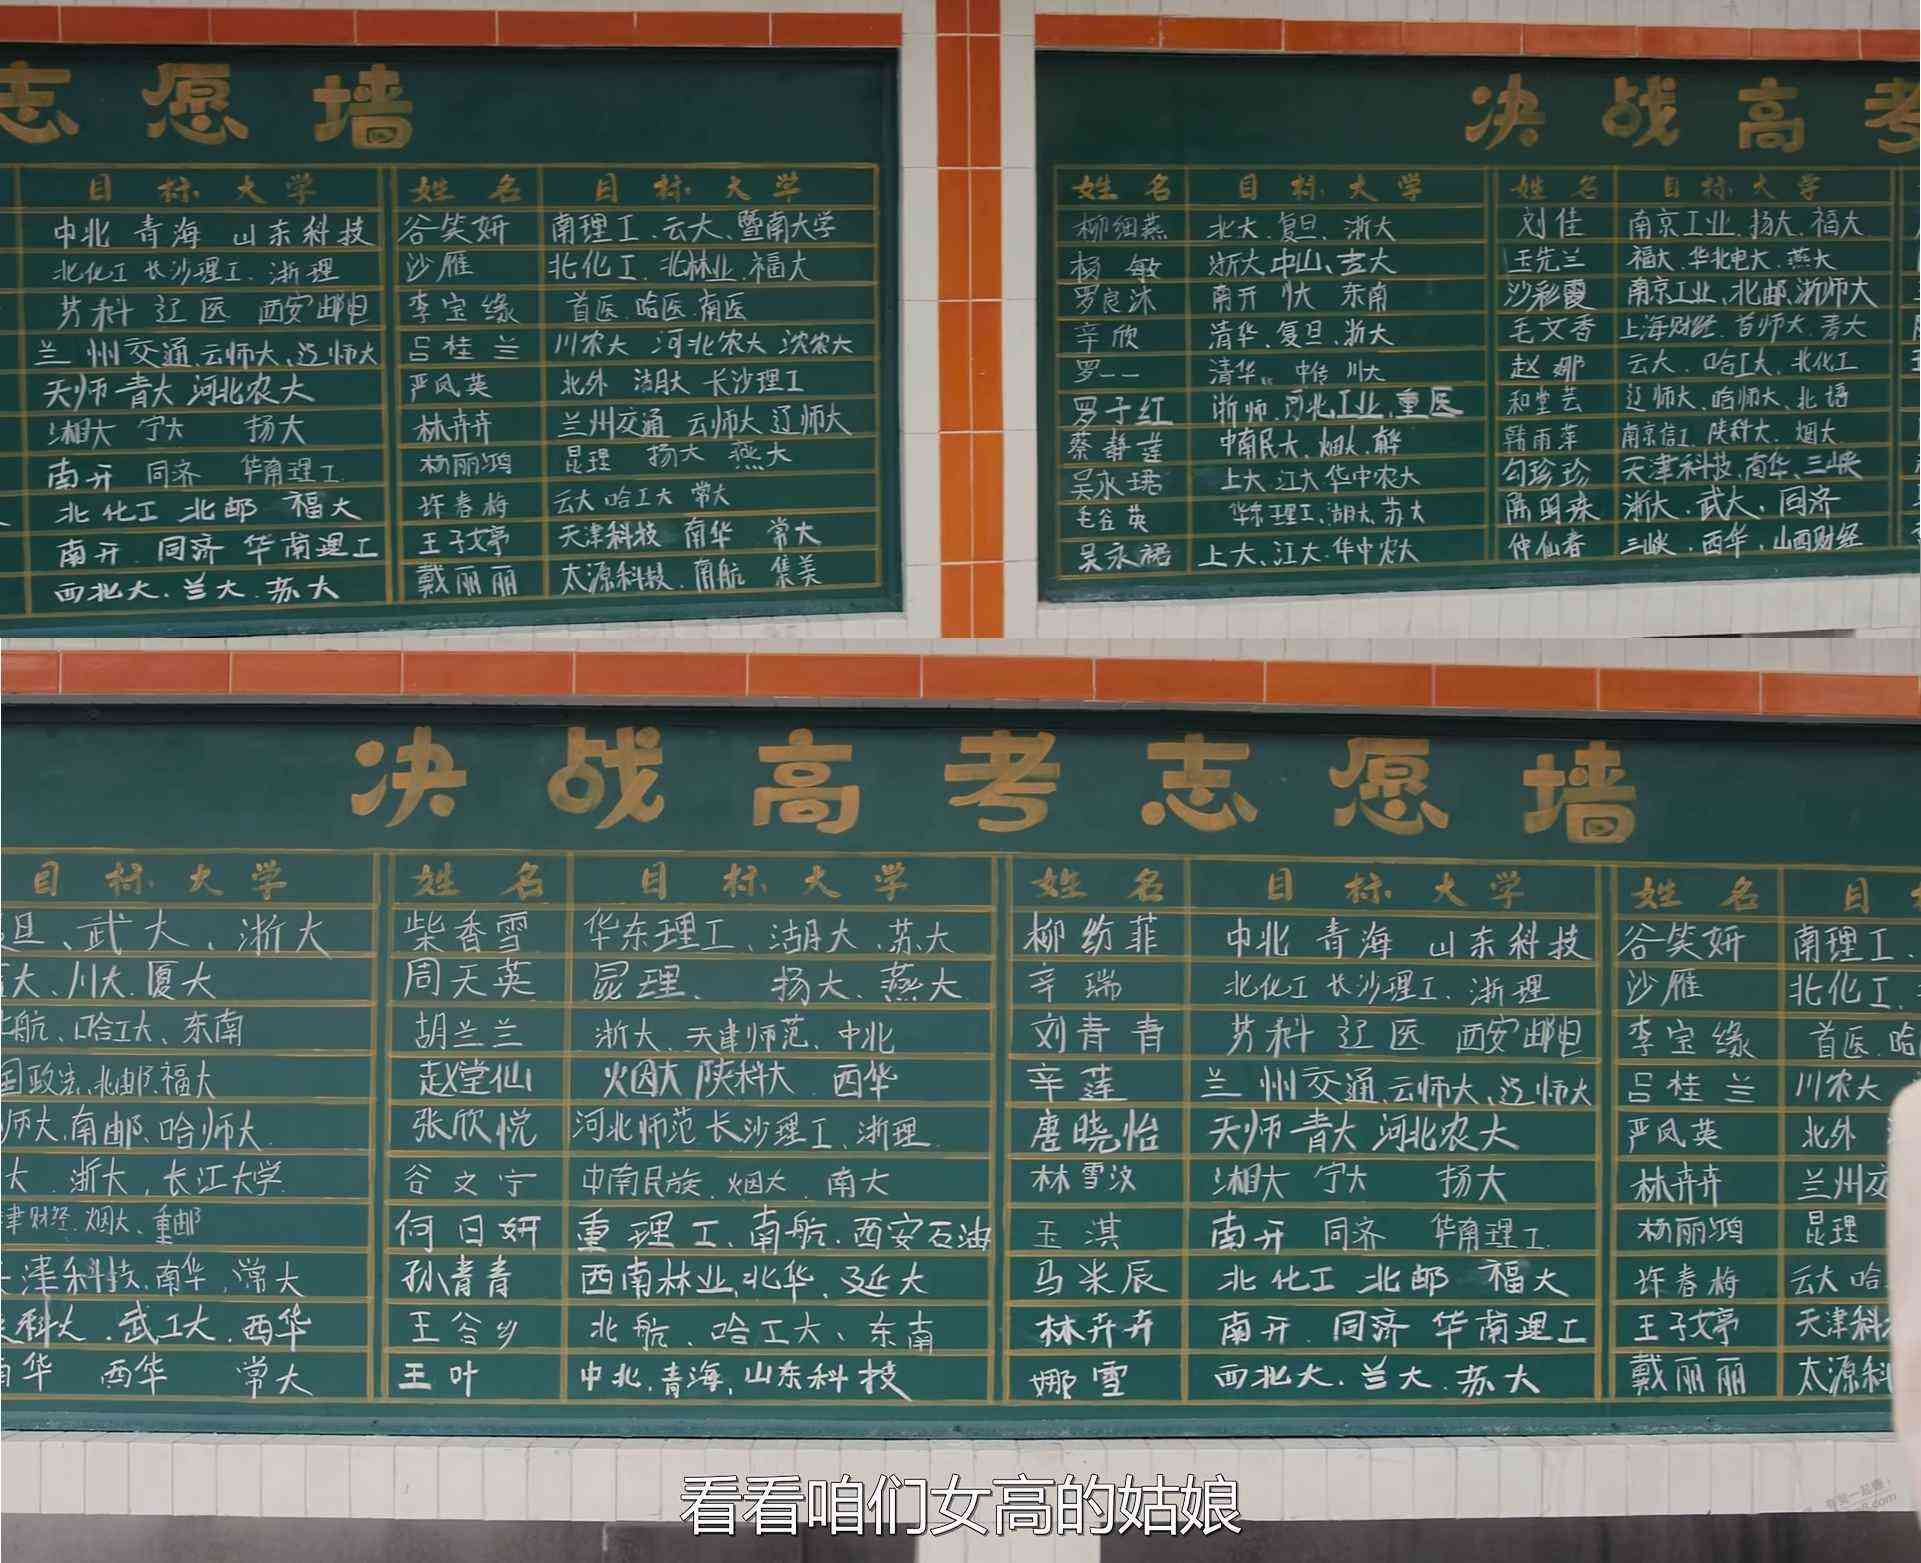 志愿墙
目标大学 姓名 目标大学
中北 青海 山东科技 谷笑妍 南理工、云大、暨南大学
北化工 长沙理工、浙理 沙雁 北化工、北林业、福大
芳科 辽医 西安邮电 李宝缘 首医、哈医、南医
兰州交通、云师大、辽师大 吕桂兰 川农大 河北农大 沈农大
天师 青大 河北农大 严凤英 北外 湖大 长沙理工
湘大 宁大 扬大 林卉卉 兰州交通 云师大 辽师大
南开 同济 华南理工 杨丽鸿 昆理 扬大 燕大
北化工 北邮 福大 许春梅 云大 哈工大 常大
南开、同济 华南理工 王子婷 天津科技 南华 常大
西北大、兰大、苏大 戴丽丽 太源科技、南航 集美
决战高考
姓名 目标大学 姓名 目标大学
柳细燕 北大、复旦、浙大 刘佳 南京工业、扬大、福大
杨敏 浙大、中山、吉大 王先兰 福大、华北电大、燕大
罗良沐 南开 川大 东南 沙彩霞 南京工业、北邮、浙师大
辛欣 清华、复旦、浙大 毛文香 上海财经、首师大、青大
罗一一 清华、中传 川大 赵娜 云大、哈工大、北化工
罗子红 浙师、河北工业、重医 和堂芸 辽师大、哈师大、北语
蔡静莲 中南民大、烟大、 韩雨萍 南京信工、陕科大、烟大
吴永珺 上大、江大 华中农大 勾珍珍 天津科技、南华、三峡
毛谷英 华东理工、湖大、苏大 陈明珠 浙大、武大、同济
吴永裙 上大、江大、华中农大 仲仙春 三峡、西华、山西财经
决战高考志愿墙
目标大学 姓名 目标大学 姓名 目标大学 姓名 目
旦、武大、浙大 柴香雪 华东理工、湖大、苏大 柳纺菲 中北 青海 山东科技 谷笑妍 南理工、
大、川大、厦大 周天英 昆理、扬大、燕大 辛瑞 北化工 长沙理工、浙理 沙雁 北化工、
航、哈工大、东南 胡兰兰 浙大、天津师范、中北 刘青青 芳科 辽医 西安邮电 李宝缘 首医、哈
国政法、北邮、福大 赵堂仙 烟大 陕科大 西华 辛莲 兰州交通、云师大、辽师大 吕桂兰 川农大
师大、南邮、哈师大 张欣悦 河北师范 长沙理工、浙理 唐晓怡 天师 青大 河北农大 严凤英 北外
大、浙大、长江大学 谷文宁 中南民族、烟大、南大 林雪汶 湘大 宁大 扬大 林卉卉 兰州交
津财经、烟大、重邮 何日妍 重理工、南航、西安石油 玉淇 南开 同济 华南理工 杨丽鸿 昆理
津科技、南华、常大 孙青青 西南林业、北华、延大 马米辰 北化工 北邮 福大 许春梅 云大 哈
科大、武工大、西华 王谷乡 北航、哈工大、东南 林卉卉 南开、同济 华南理工 王子婷 天津科
南华 西华 常大 王叶 中北、青海、山东科技 娜雪 西北大、兰大、苏大 戴丽丽 太源科
看看咱们女高的姑娘